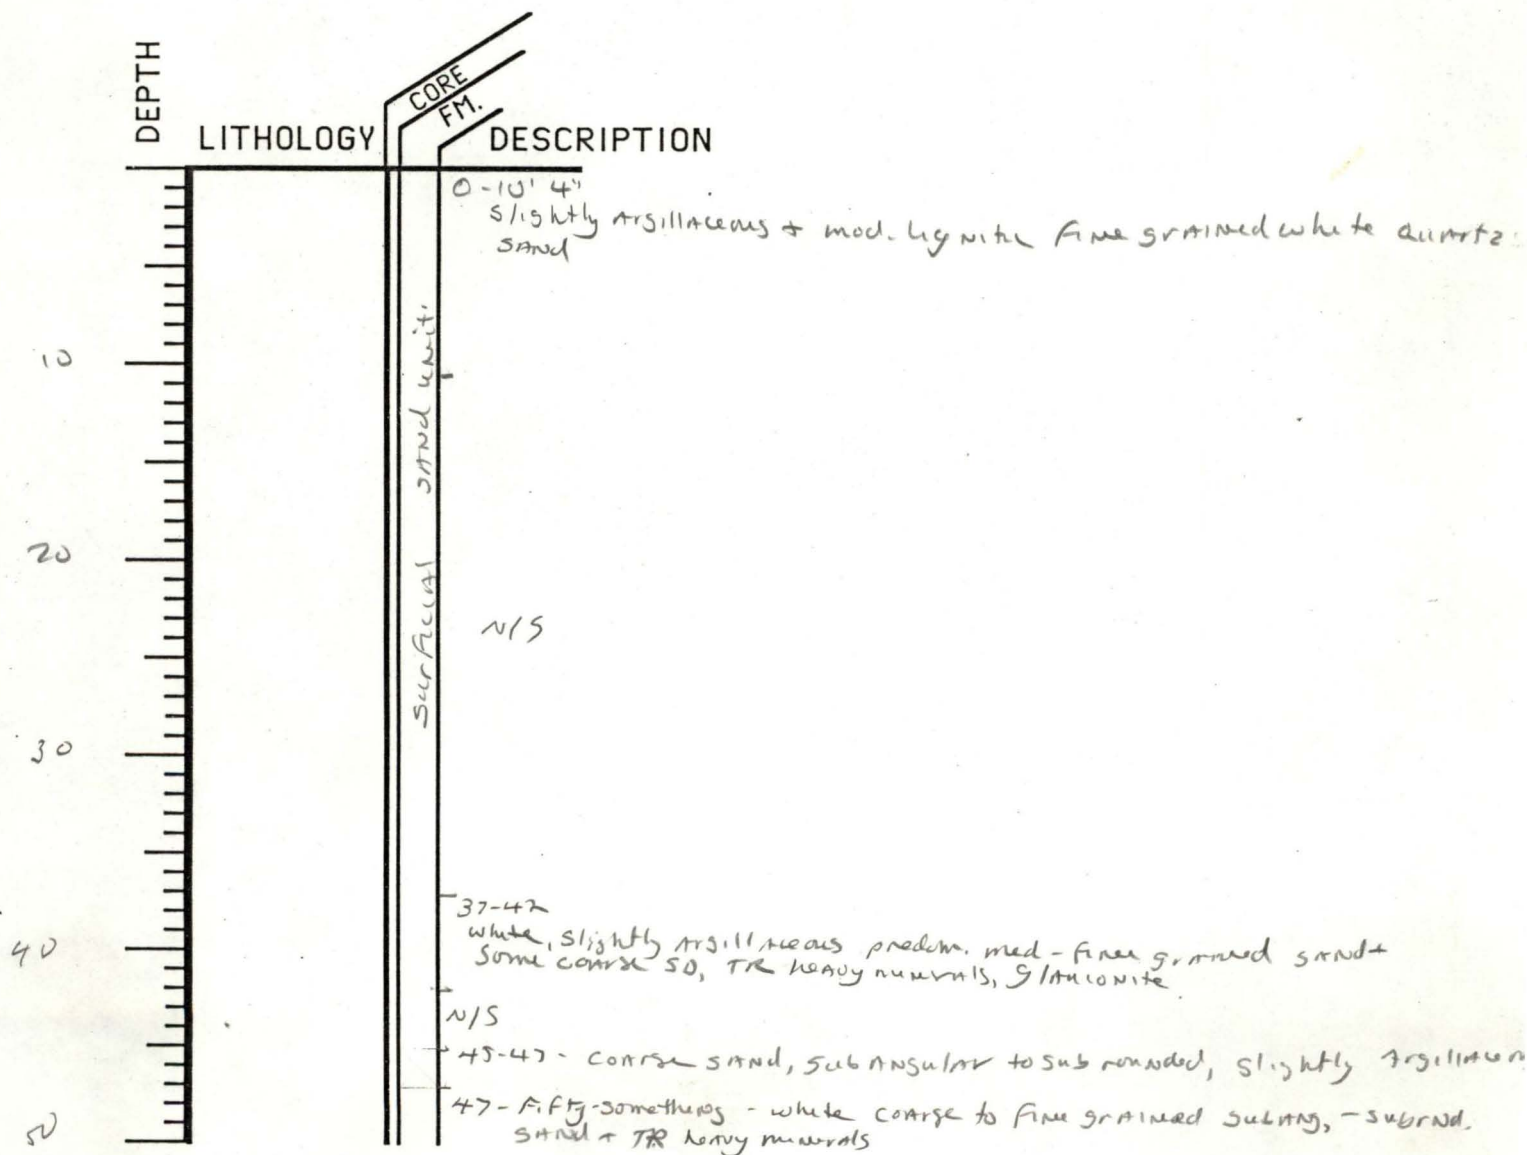 DEPTH
LITHOLOGY
CORE
FM.
DESCRIPTION
0-10' 4"
Slightly Argillaceous + mod. lignitic fine grained white quartz
SAND
10
Surficial SAND unit.
20
N/S
30
37-42
white, slightly argillaceous predom. med-fine grained sand +
Some coarse SD, TR heavy minerals, glauconite
40
N/S
45-47 - coarse sand, subangular to subrounded, slightly Argillaceous
47 - Fifty-something - white coarse to fine grained subang, - subrnd.
SAND + TR heavy minerals
50